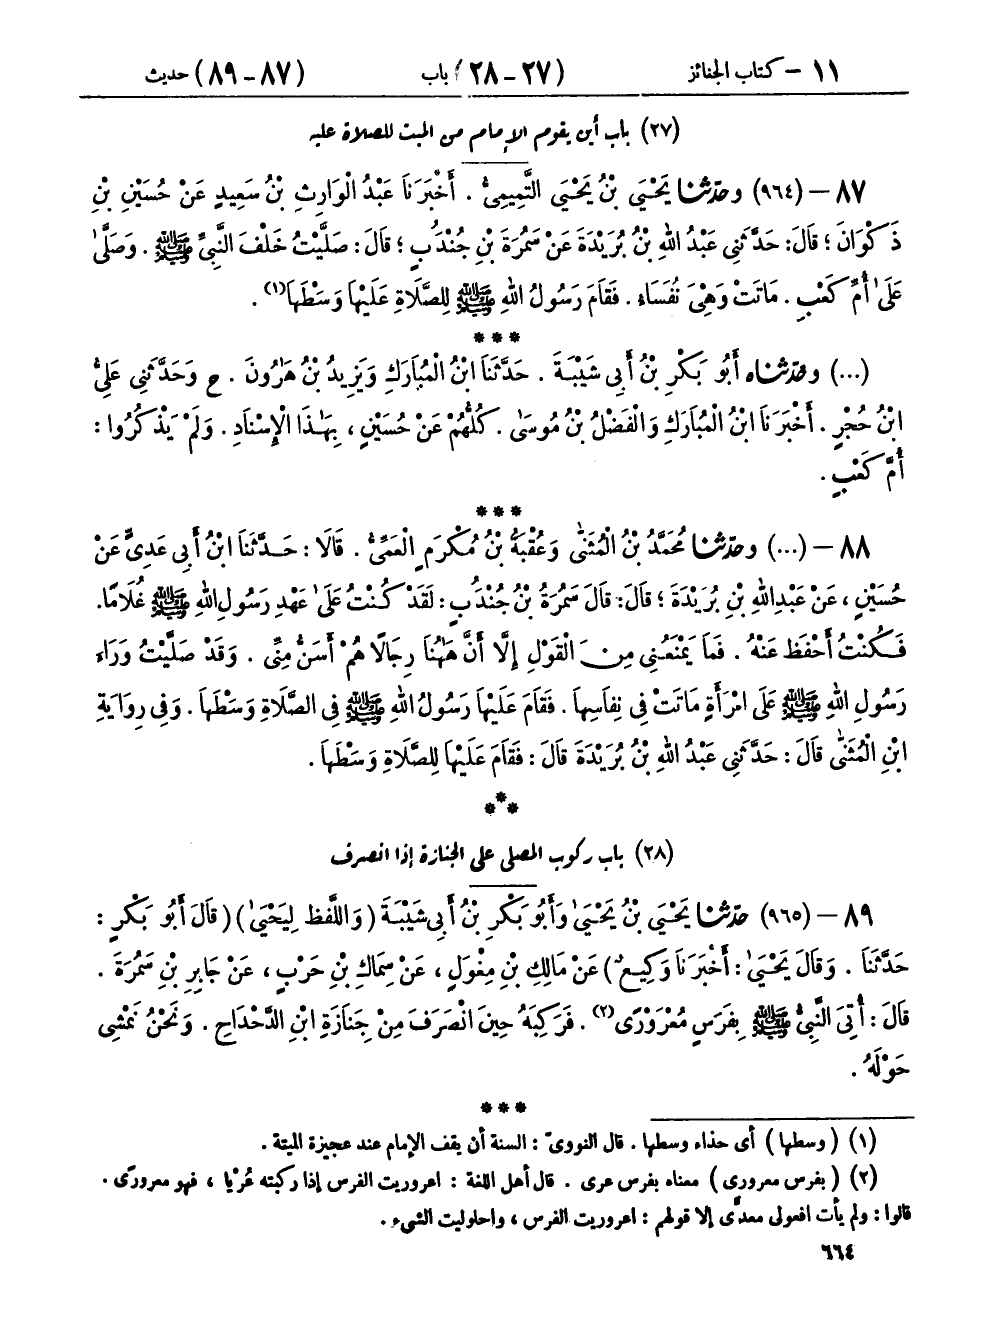 ١١ – كتاب الجنائز (٢٧ – ٢٨) باب (٨٧ – ٨٩) حديث
(٢٧) باب أين يقوم الإمام من الميت للصلاة عليه
٨٧ – (٩٦٤) وحدّثنا يَحْيَى بْنُ يَحْيَى التَّمِيمِيُّ . أَخْبَرَنَا عَبْدُ الْوَارِثِ بْنُ سَعِيدٍ عَنْ حُسَيْنِ بْنِ
ذَكْوَانَ ؛ قَالَ: حَدَّثَنِي عَبْدُ اللهِ بْنُ بُرَيْدَةَ عَنْ سَمُرَةَ بْنِ جُنْدَُبٍ ؛ قَالَ: صَلَّيْتُ خَلْفَ النَّبِيِّ ﷺ . وَصَلَّىٰ
عَلَىٰ أُمِّ كَعْبٍ . مَاتَتْ وَهِيَ نُفَسَاءُ . فَقَامَ رَسُولُ اللهِ ﷺ لِلصَّلَاةِ عَلَيْهَا وَسَطَهَا(١) .
* * *
(...) وحدّثناه أَبُو بَكْرِ بْنُ أَبِي شَيْبَةَ . حَدَّثَنَا ابْنُ الْمُبَارَكِ وَيَزِيدُ بْنُ هَٰرُونَ . ح وَحَدَّثَنِي عَلِيُّ
ابْنُ حُجْرٍ . أَخْبَرَنَا ابْنُ الْمُبَارَكِ وَالْفَضْلُ بْنُ مُوسَىٰ . كُلُّهُمْ عَنْ حُسَيْنٍ ، بِهَٰذَا الْإِسْنَادِ . وَلَمْ يَذْكُرُوا :
أُمَّ كَعْبٍ .
* * *
٨٨ – (...) وحدّثنا مُحَمَّدُ بْنُ الْمُثَنَّىٰ وَعُقْبَةُ بْنُ مُكْرَمٍ الْعَمِّيُّ . قَالَا : حَدَّثَنَا ابْنُ أَبِي عَدِيٍّ عَنْ
حُسَيْنٍ ، عَنْ عَبْدِ اللهِ بْنِ بُرَيْدَةَ ؛ قَالَ: قَالَ سَمُرَةُ بْنُ جُنْدَُبٍ : لَقَدْ كُنْتُ عَلَىٰ عَهْدِ رَسُولِ اللهِ ﷺ غُلَامًا.
فَكُنْتُ أَحْفَظُ عَنْهُ . فَمَا يَمْنَعُنِي مِنَ الْقَوْلِ إِلَّا أَنَّ هَٰهُنَا رِجَالًا هُمْ أَسَنُّ مِنِّي . وَقَدْ صَلَّيْتُ وَرَاءَ
رَسُولِ اللهِ ﷺ عَلَى امْرَأَةٍ مَاتَتْ فِي نِفَاسِهَا . فَقَامَ عَلَيْهَا رَسُولُ اللهِ ﷺ فِي الصَّلَاةِ وَسَطَهَا . وَفِي رِوَايَةِ
ابْنِ الْمُثَنَّىٰ قَالَ : حَدَّثَنِي عَبْدُ اللهِ بْنُ بُرَيْدَةَ قَالَ : فَقَامَ عَلَيْهَا لِلصَّلَاةِ وَسَطَهَا .
* * *
(٢٨) باب ركوب المصلي على الجنازة إذا انصرف
٨٩ – (٩٦٥) حدّثنا يَحْيَى بْنُ يَحْيَىٰ وَأَبُو بَكْرِ بْنُ أَبِي شَيْبَةَ (وَاللَّفْظُ لِيَحْيَىٰ) (قَالَ أَبُو بَكْرٍ :
حَدَّثَنَا . وَقَالَ يَحْيَىٰ : أَخْبَرَنَا وَكِيعٌ) عَنْ مَالِكِ بْنِ مِغْوَلٍ ، عَنْ سِمَاكِ بْنِ حَرْبٍ ، عَنْ جَابِرِ بْنِ سَمُرَةَ .
قَالَ : أُتِيَ النَّبِيُّ ﷺ بِفَرَسٍ مُعْرَوْرًى(٢) . فَرَكِبَهُ حِينَ انْصَرَفَ مِنْ جَنَازَةِ ابْنِ الدَّحْدَاحِ . وَنَحْنُ نَمْشِي
حَوْلَهُ .
* * *
(١) ( وسطها ) أى حذاء وسطها . قال النووىّ : السنة أن يقف الإمام عند عجيزة الميتة .
(٢) ( بفرس معرورى ) معناه بفرس عرى . قال أهل اللغة : اعروريت الفرس إذا ركبته عُرْيا ، فهو معرورًى .
قالوا : ولم يأت افعولى معدًّى إلا قولهم : اعروريت الفرس ، واحلوليت الشىء .
٦٦٤